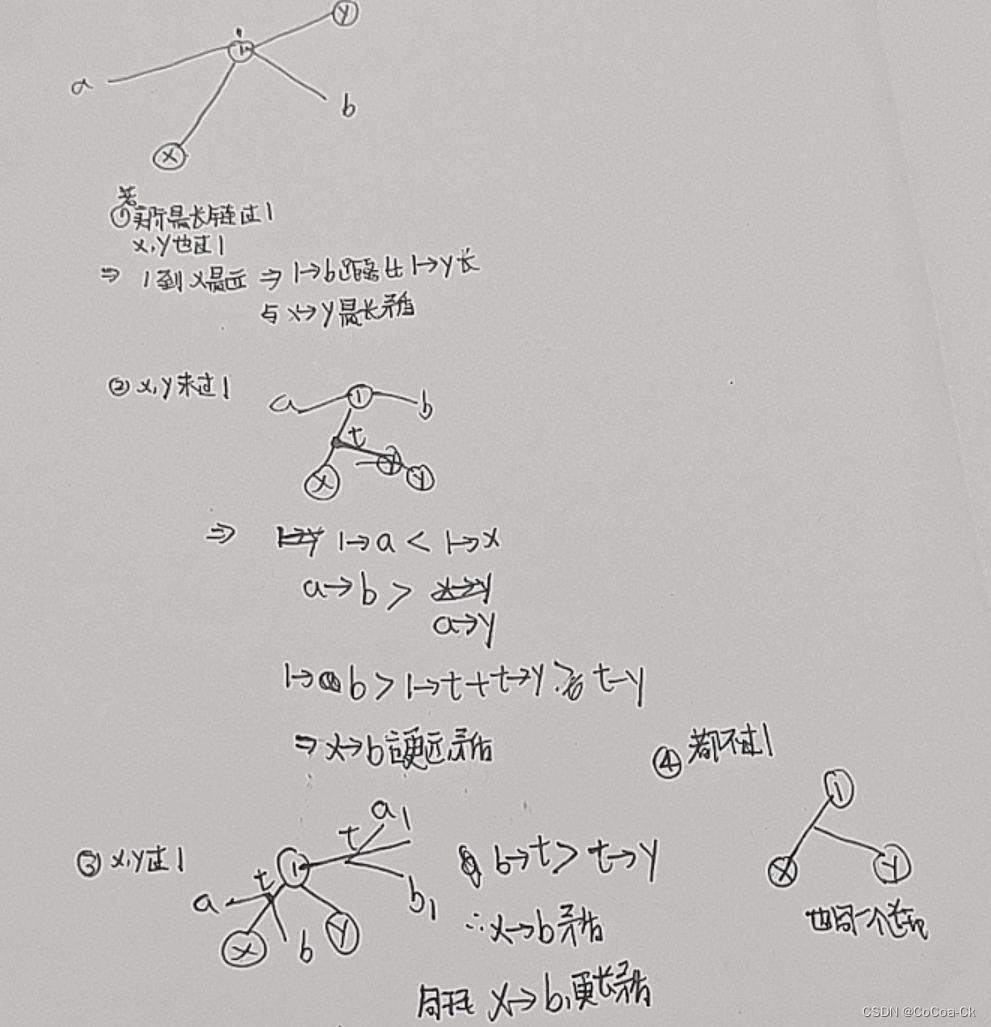 y
1
a
b
x
若
①实际最长链过1
x,y也过1
⇒ 1到x最远 ⇒ 1→b距离比1→y长
与x→y最长矛盾
②x,y未过1
a 1 b
t
x y y
⇒ 1→a < 1→x
a→b >
a→y
1→b > 1→t+t→y > t→y
⇒ x→b 更远矛盾
④都不过1
1
x y
也同一个
③x,y过1
a1
t
1
b→t > t→y
t
a
b1
x b y
∴x→b矛盾
同理 x→b1更长矛盾
CSDN @CoCoa-Ck